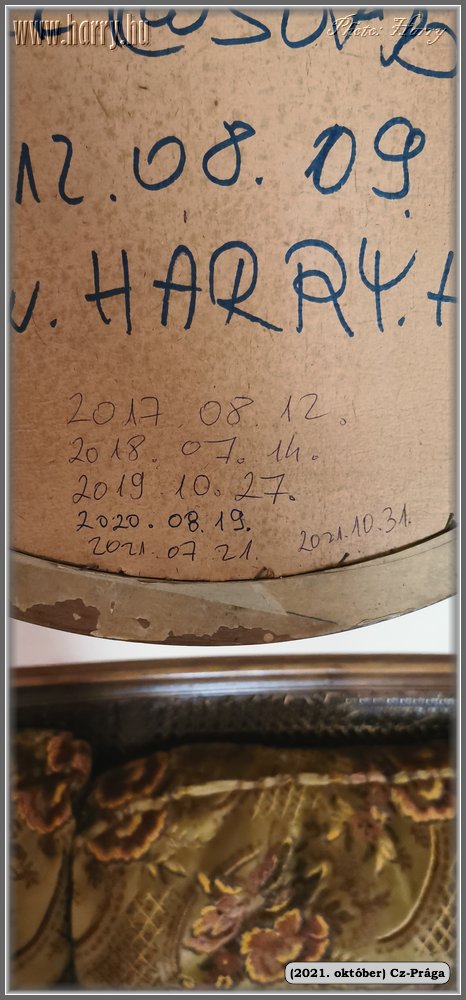 www.harry.hu
Photo: Harry
12.08.09
v. HARRY. H
2017. 08. 12.
2018. 07. 14.
2019. 10. 27.
2020. 08. 19.
2021. 07 21.
2021.10.31.
(2021. október) Cz-Prága